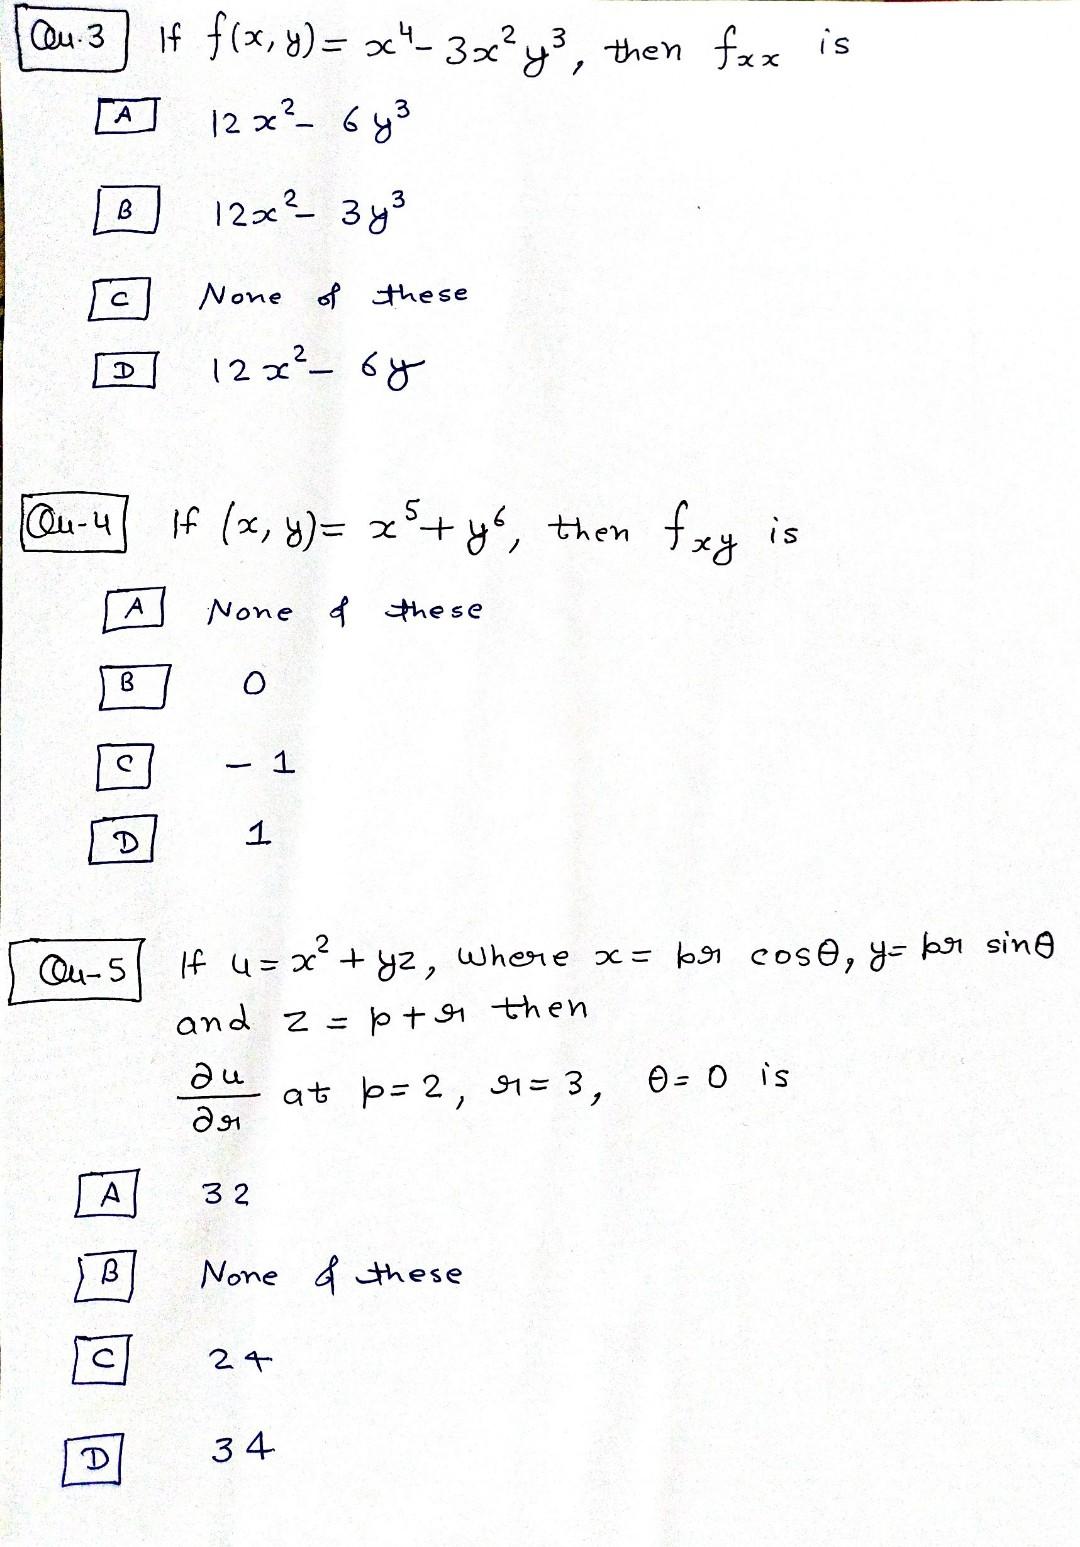 Qu.3 If f(x, y) = x⁴ - 3x²y³, then fₓₓ is
A 12x² - 6y³
B 12x² - 3y³
C None of these
D 12x² - 6y
Qu-4 If (x, y) = x⁵ + y⁶, then f_xy is
A None of these
B 0
C - 1
D 1
Qu-5 If u = x² + yz, where x = pr cosθ, y = pr sinθ
and z = p + r then
∂u/∂r at p = 2, r = 3, θ = 0 is
A 32
B None of these
C 24
D 34